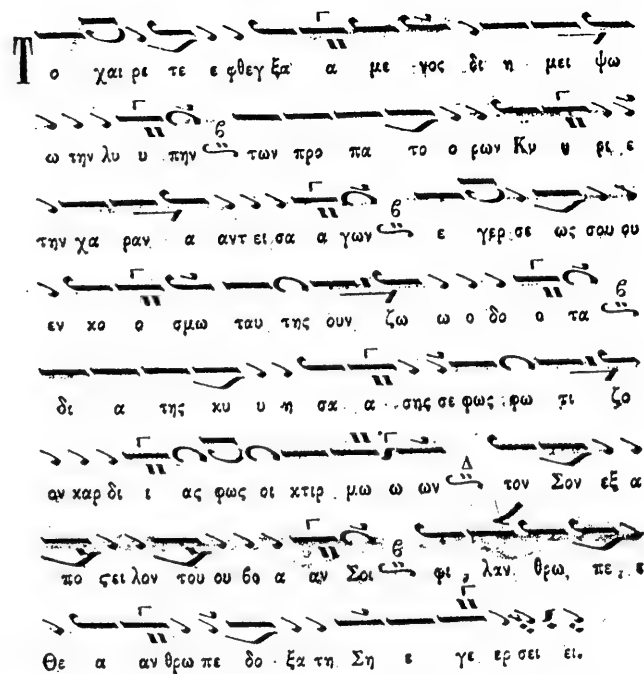 Το χαι ρε τε ε φθεγ ξα α με νος δι η μει ψω
ω την λυ υ πην των προ πα το ο ρων Κυ υ ρι ε
την χα ραν α αντ ει σα α γων ε γερ σε ως σου ου
εν κο ο σμω ταυ της ουν ζω ω ο δο ο τα
δι α της κυ υ η σα α σης σε φως φω τι ζο
ον καρ δι ι ας φως οι κτιρ μω ω ων τον Σον εξ α
πο ςει λον του ου βο α αν Σοι φι λαν θρω πε ε
Θε α αν θρω πε δο ξα τη Ση ε γε ερ σει ει.